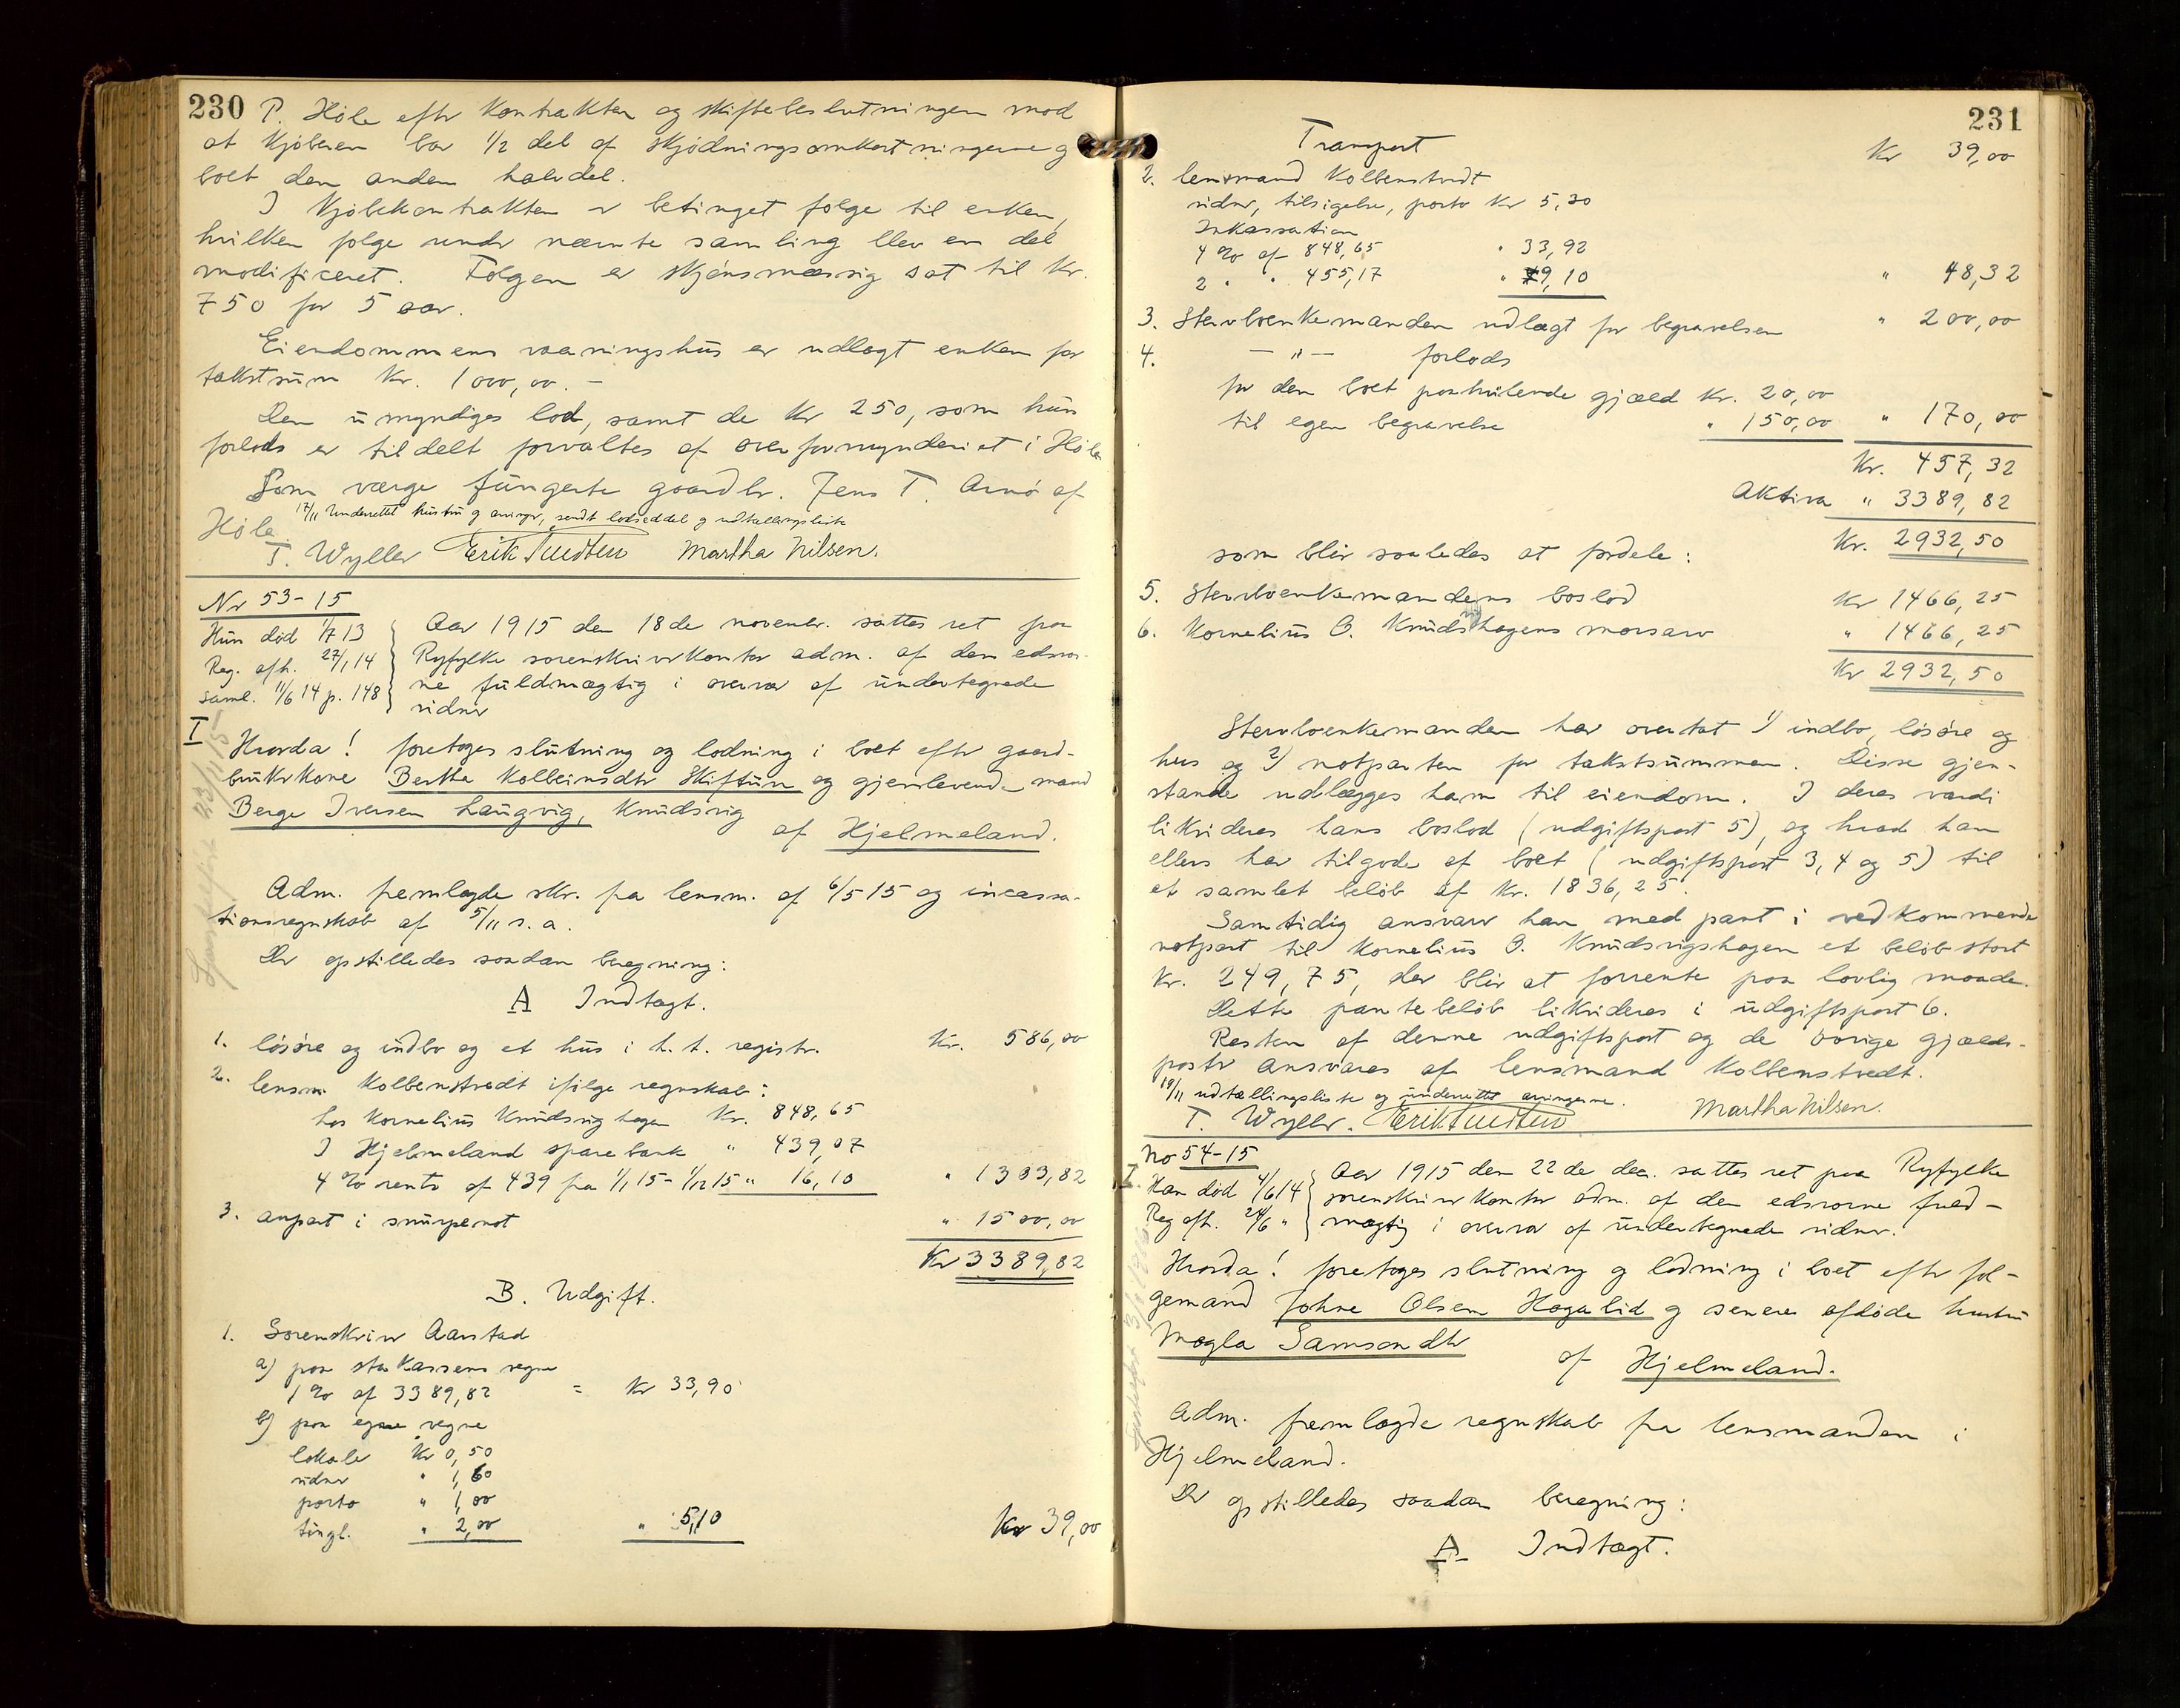 230
P. Høle eftr kontrakten og skiftebeslutningen mod
at kjøberen bær 1/2 del af skjødningsomkostningerne og
boet den anden halvdel.
I kjøbekontrakten er betinget følge til enken,
hvilken følge under nævnte samling blev en del
modificeret. Følgen er skjønsmæssig sat til kr.
750 for 5 aar.
Eiendommens vaaningshus er udlagt enken for
takstsum kr. 1000,00.-
Den umyndiges lod, samt de kr 250, som hun
forlods er tildelt forvaltes af overformynderiet i Høle
Som værge fungerte gaardbr. Jens T. Arnø af
17/11 Underrettet hustru og arvinger, sendt lodseddel og udtællingsliste
Høle.
T. Wyller Erik Knudsen Martha Nilsen.
Nr 53-15
Hun død 1/7 13
Reg. afh. 27/1 14
saml. 11/6 14 p. 148
Aar 1915 den 18de novenbr. sattes ret paa
Ryfylke sorenskriverkontor adm. af den edsvor-
ne fuldmægtig i overvær af undertegnede
vidner
I
Hvorda! foretoges slutning og lodning i boet eftr gaard-
brukrkone Bertha Kolbeinsdtr Skiftun og gjenlevende mand
Berge Iversen Laugvig, Knudsvig
af Hjelmeland.
Adm. fremlagde skr. fra lensm. af 6/5 15 og incassa-
tionsregnskab af 5/11 s.a.
Der opstilledes saadan beregning:
A Indtægt.
1. løsøre og indbo og et hus i h.t. registr. Kr. 586,00
2. lensm. Kolbenstvedt ifølge regnskab:
hos Kornelius Knudsvighagen Kr. 848,65
I Hjelmeland sparebank " 439,07
4 % rente af 439 fra 1/1 15 - 1/12 15 " 16,10 " 1303,82
3. anpart i snurpenot " 1500,00
Kr 3389,82
B. Udgift.
1. Sorenskriver Aarstad
a) paa statskassens vegne
1 % af 3389,82 = Kr 33,90
b) paa egne vegne
lokale Kr 0,50
vidner " 1,60
porto " 1,00
tingl. " 2,00 " 5,10 Kr 39,00
231
Transport Kr 39,00
2. lensmand Kolbenstvedt
vidner, tilsigelse, porto Kr 5,30
Inkassation
4 % af 848,65 " 33,92
2 " " 455,17 " 9,10 " 48,32
3. Stervboenkemanden udlagt for begravelsen " 200,00
4. — " — forlods
for den boet paahvilende gjæld Kr. 20,00
til egen begravelse " 150,00 " 170,00
Kr. 457,32
Aktiva " 3389,82
som blir saaledes at fordele: Kr. 2932,50
5. Stervboenkemandens boslod Kr 1466,25
6. Kornelius B. Knudsvighagens morsarv " 1466,25
Kr 2932,50
Stervboenkemanden har overtat 1) indbo, løsøre og
hus og 2) notparten for takstsummen. Disse gjen-
stande udlægges ham til eiendom. I deres værdi
likvideres hans boslod (udgiftspost 5), og hvad han
ellers har tilgode af boet (udgiftspost 3, 4 og 5) til
et samlet beløb af kr. 1836,25.
Samtidig ansvarer han med pant i vedkommende
notpart til Kornelius B. Knudsvigshagen et beløb stort
kr. 249,75, der blir at forrente paa lovlig maade.
Dette pantebeløb likvideres i udgiftspost 6.
Resten af denne udgiftspost og de øvrige gjælds-
poster ansvares af lensmand Kolbenstvedt.
19/11 udtællingsliste og underrettet arvingerne.
T. Wyller. Erik Knudsen Martha Nilsen.
No 54-15
I.
Han død 4/6 14
Reg afh. 24/6 "
Aar 1915 den 22de des. sattes ret paa Ryfylke
sorenskriverkontor adm. af den edsvorne fuld-
mægtig i overvær af undertegnede vidner.
Hvorda! foretoges slutning og lodning i boet eftr føl-
gemand Johne Olsen Hagalid og senere afdøde hustru
Magla Samsondtr
af Hjelmeland.
Adm. fremlagde regnskab fra lensmanden i
Hjelmeland.
Der opstilledes saadan beregning:
A Indtægt.